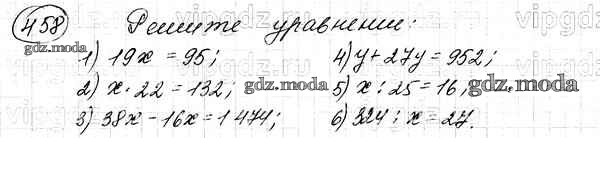 458 Решите уравнении:
1) 19x = 95;
2) x · 22 = 132;
3) 38x - 16x = 1 474;
4) y + 27y = 952;
5) x : 25 = 16,
6) 324 : x = 27.
gdz.moda
gdz.moda
gdz.moda
vipgdz
vipgdz
vipgdz